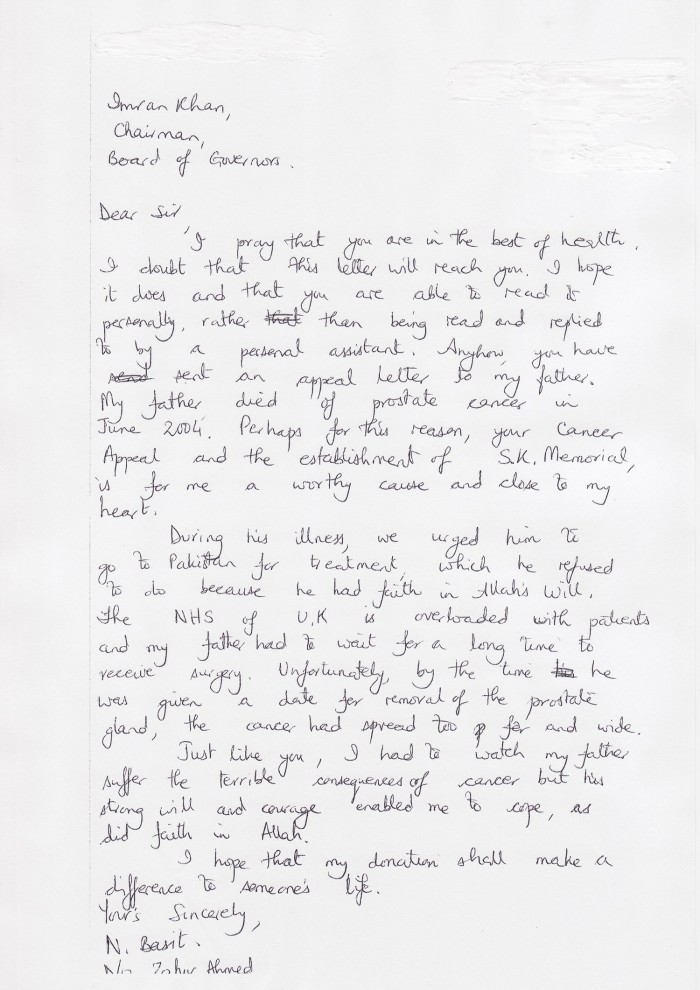 Imran Khan,
Chairman,
Board of Governors.
Dear Sir,
I pray that you are in the best of health.
I doubt that this letter will reach you. I hope
it does and that you are able to read it
personally, rather that than being read and replied
to by a personal assistant. Anyhow, you have
send sent an appeal letter to my father.
My father died of prostate cancer in
June 2004. Perhaps for this reason, your Cancer
Appeal and the establishment of S.K. Memorial,
is for me a worthy cause and close to my
heart.
During his illness, we urged him to
go to Pakistan for treatment, which he refused
to do because he had faith in Allah's Will.
The NHS of U.K is overloaded with patients
and my father had to wait for a long time to
receive surgery. Unfortunately, by the time he
was given a date for removal of the prostate
gland, the cancer had spread too far and wide.
Just like you, I had to watch my father
suffer the terrible consequences of cancer but his
strong will and courage enabled me to cope, as
did faith in Allah.
I hope that my donation shall make a
difference to someone's life.
Your's Sincerely,
N. Basit.
Ahmed